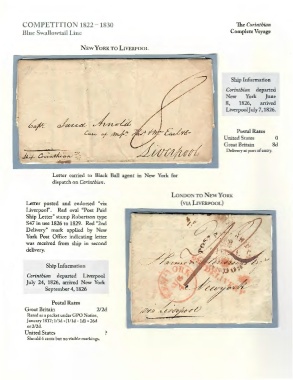 COMPETITION 1822–1830
Blue Swallowtail Line
The Corinthian
Complete Voyage
NEW YORK TO LIVERPOOL
Capt. Jared Arnold
Liverpool
Ship Corinthian
Ship Information
Corinthian departed
New York June
8, 1826, arrived
Liverpool July 7, 1826.
Postal Rates
United States 0
Great Britain 8d
Delivery at port of entry.
Letter carried to Black Ball agent in New York for
dispatch on Corinthian.
LONDON TO NEW YORK
(VIA LIVERPOOL)
Letter posted and endorsed "via
Liverpool". Red oval "Post Paid
Ship Letter" stamp Robertson type
S47 in use 1826 to 1829. Red "2nd
Delivery" mark applied by New
York Post Office indicating letter
was received from ship in second
delivery.
Ship Information
Corinthian departed Liverpool
July 24, 1826, arrived New York
September 4, 1826
Postal Rates
Great Britain 2/2d
United States ?
Should 6 cents but no visible markings.
via Liverpool